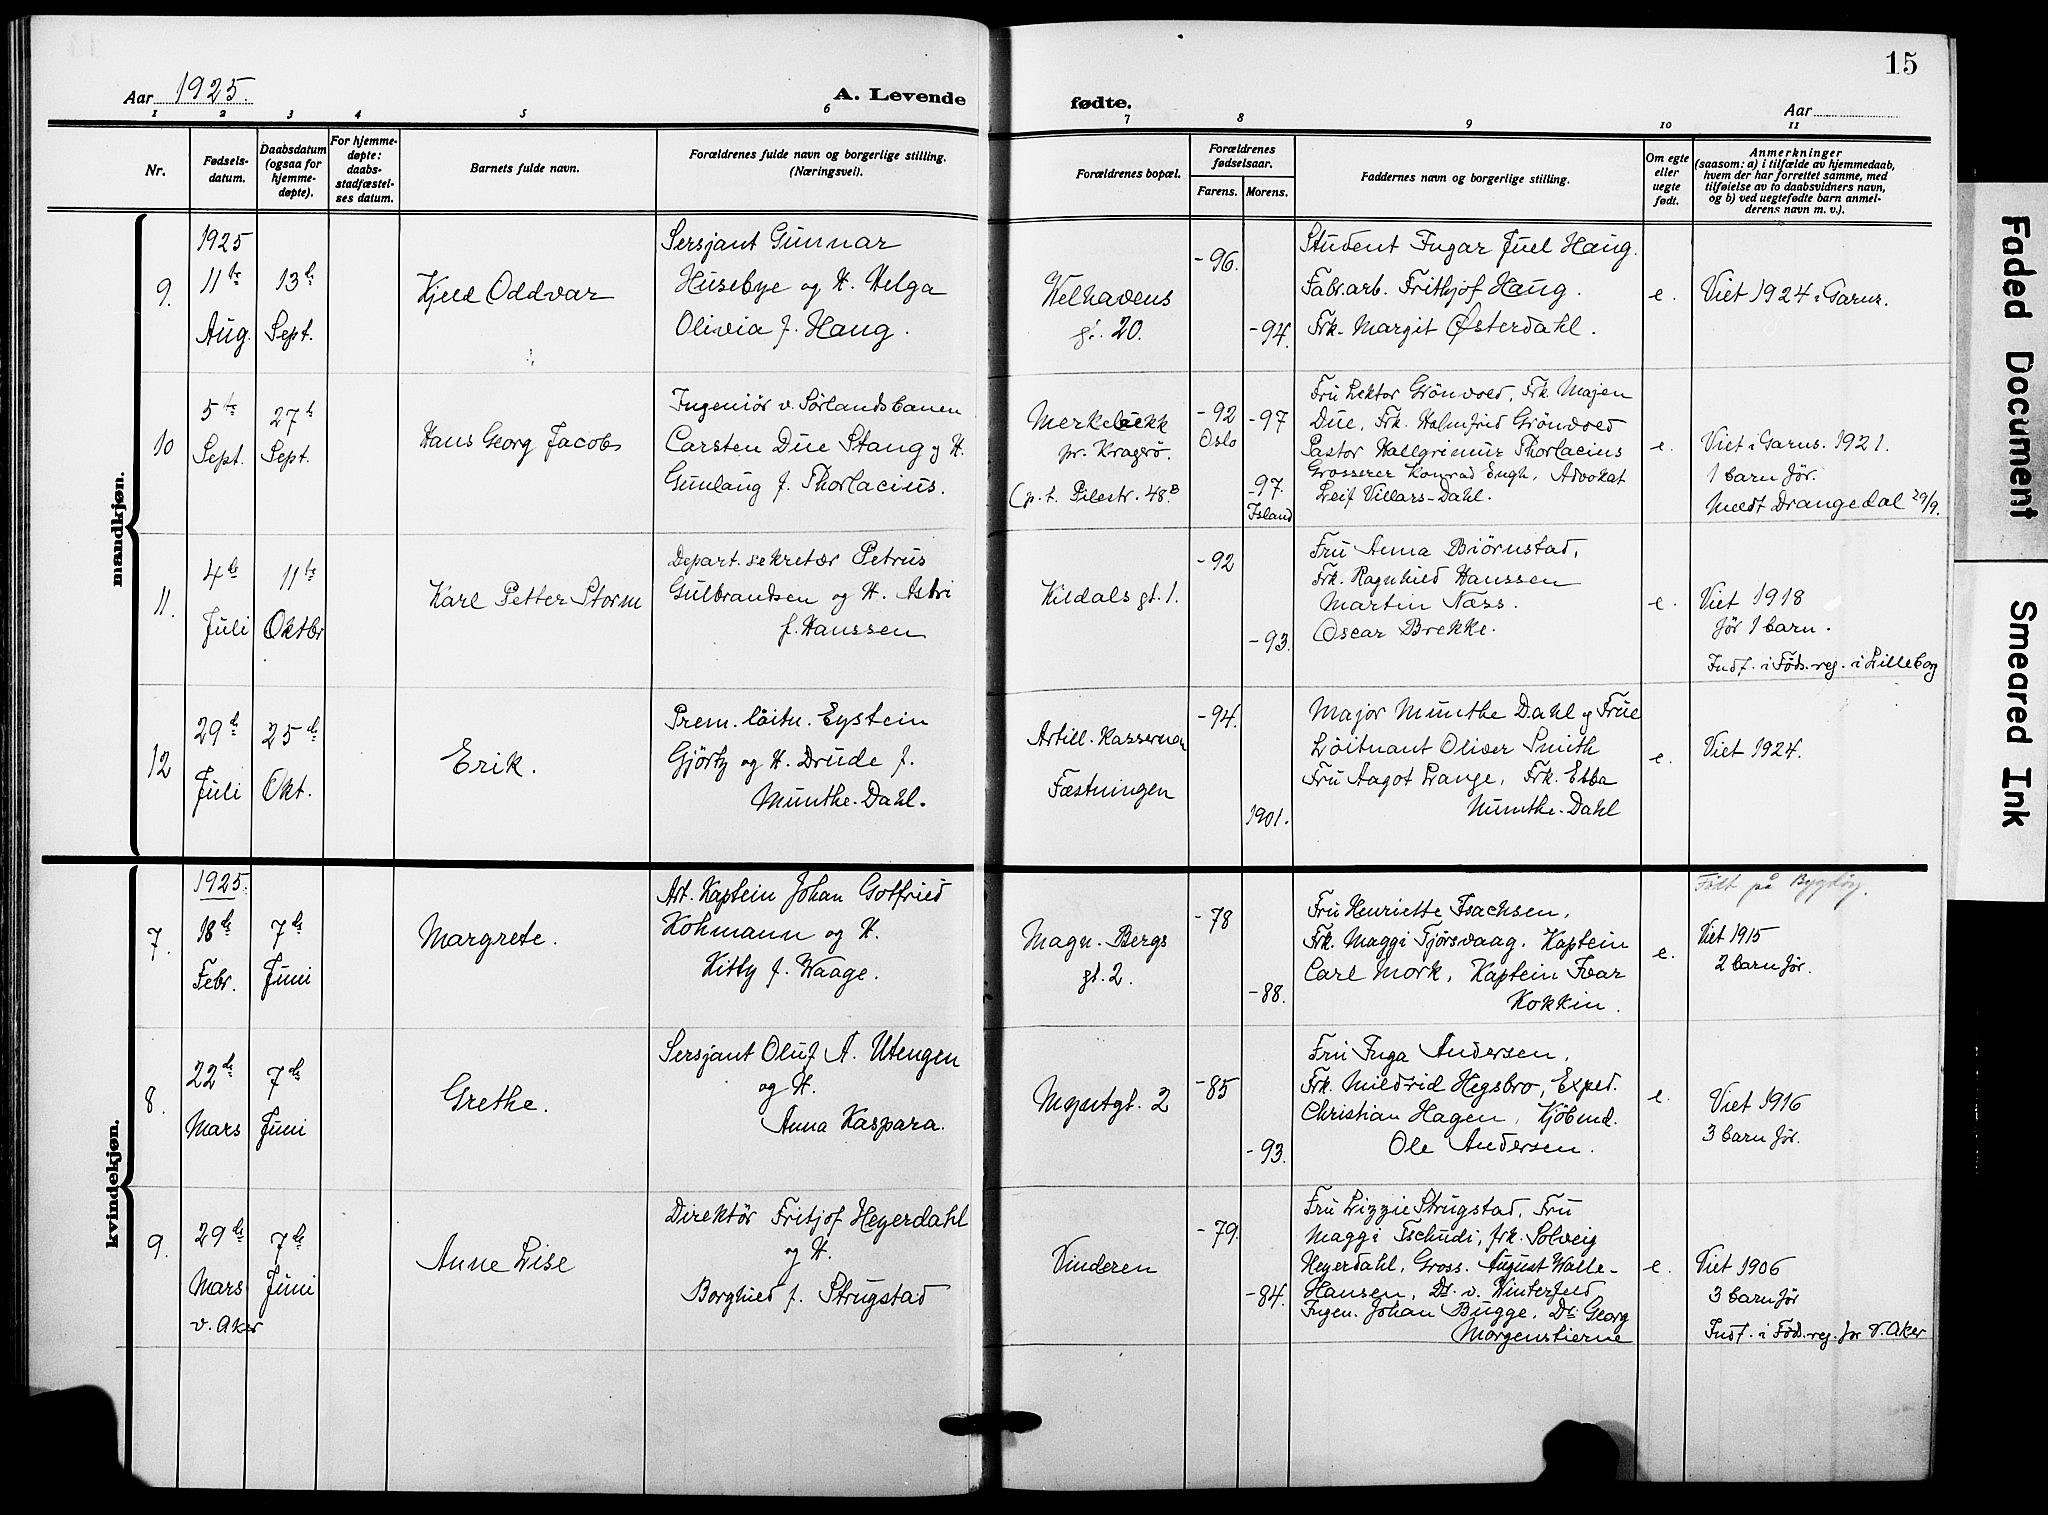 15
Aar 1925.
A. Levende fødte.
Aar
1 2 3 4 5 6 7 8 9 10 11
Nr.
Fødsels-
datum.
Daabsdatum
(ogsaa for
hjemme-
døpte).
For hjemme-
døpte:
daabs-
stadfæstel-
ses datum.
Barnets fulde navn.
Forældrenes fulde navn og borgerlige stilling.
(Næringsvei).
Forældrenes bopæl.
Forældrenes
fødselsaar.
Farens. Morens.
Faddernes navn og borgerlige stilling.
Om egte
eller
uegte
født.
Anmerkninger
(saasom: a) i tilfælde av hjemmedaab,
hvem der har forrettet samme, med
tilføielse av to daabsvidners navn,
og b) ved uegtefødte barn anmel-
derens navn m. v.).
mandkjøn.
9.
1925
11te
Aug.
13de
Sept.
Kjell Oddvar
Sersjant Gunnar
Husebye og H. Helga
Olivia f. Haug.
Welhavens
gt. 20.
-96.
-94.
Student Ingar Juel Haug.
Fabr.arb. Frithjof Haug.
Frk. Margit Østerdahl.
e.
Viet 1924 i Garns.
10
5te
Sept.
27de
Sept.
Hans Georg Jacob
Ingeniör v. Sørlandsbanen
Carsten Due Stang og H.
Gunlaug f. Thorlacius.
Merkebekk
pr. Kragerø.
(p.t. Pilestr. 48B
-92
Oslo
-97
-97.
Island
Fru Lektor Grönvold, Frk. Majen
Due, Frk. Holmfrid Grönvold
Pastor Hallgrimur Thorlacius
Grosserer Konrad Engh, Advokat
Leif Villars-Dahl.
e.
Viet i Garns. 1921.
1 barn før.
Meldt Drangedal 29/9.
11.
4de
Juli
11te
Oktbr
Karl Petter Storm
Depart. sekretær Petrus
Gulbrandsen og H. Astri
f. Hanssen
Kildals gt. 1.
-92
-93.
Fru Anna Biörnstad,
Frk. Ragnhild Hanssen
Martin Næss.
Oscar Brekke.
e.
Viet 1918
før 1 barn.
Indf. i Föds.reg. i Lilleborg
12
29de
Juli
25de
Okt.
Erik.
Prem. löitn. Eystein
Gjörtz og H. Drude f.
Munthe-Dahl.
Artill. Kasernen
Fæstningen
-94.
1901.
Major Munthe Dahl og Frue
Löitnant Oliver Smith
Fru Aagot Lange, Frk. Ebba
Munthe-Dahl
e.
Viet 1924.
kvindekjøn.
7.
1925.
18de
Febr.
7de
Juni
Margrete.
Art. Kaptein Johan Gotfried
Kohmann og H.
Kitty f. Waage.
Magn. Bergs
gt. 2.
-78
-88.
Fru Henriette Isachsen,
Frk. Maggi Tjörsvaag, Kaptein
Carl Mork, Kaptein Ivar
Kokkin.
e.
Født på Bygdøy.
Viet 1915
2 barn før.
8.
22de
Mars
7de
Juni
Grethe.
Sersjant Oluf A. Utengen
og H.
Anna Kaspara.
Myntgt. 2
-85
-93.
Fru Inga Andersen,
Frk. Mildrid Hegsbro, Exped.
Christian Hagen, Kjöbmd.
Ole Andersen.
e.
Viet 1916
3 barn før.
9.
29de
Mars
v. Aker
7de
Juni
Anne Lise
Direktör Fritjof Heyerdahl
og H.
Borghild f. Strugstad
Vinderen
-79.
-84.
Fru Lizzie Strugstad, Fru
Maggi Tschudi, frk. Solveig
Heyerdahl, Gross. August Walle-
Hansen, Dr. v. Winterfeld
Ingen. Johan Bugge, Dr. Georg
Morgenstierne
e.
Viet 1906
3 barn før
Indf. i Föd.reg. for V. Aker
Faded Document
Smeared Ink